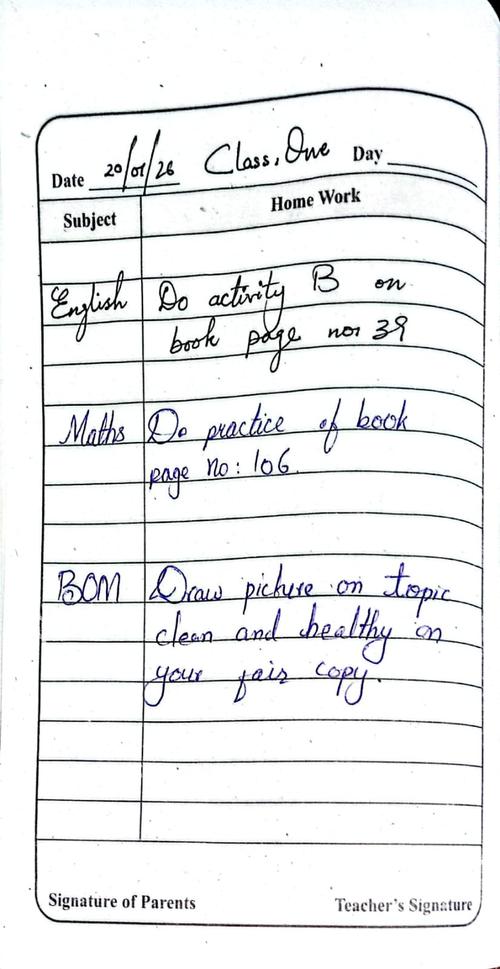 Date 20/01/26 Class, One Day
Subject Home Work
English Do activity B on
book page no: 39
Maths Do practice of book
page no: 106.
BOM Draw picture on topic
clean and healthy on
your fair copy.
Signature of Parents Teacher's Signature